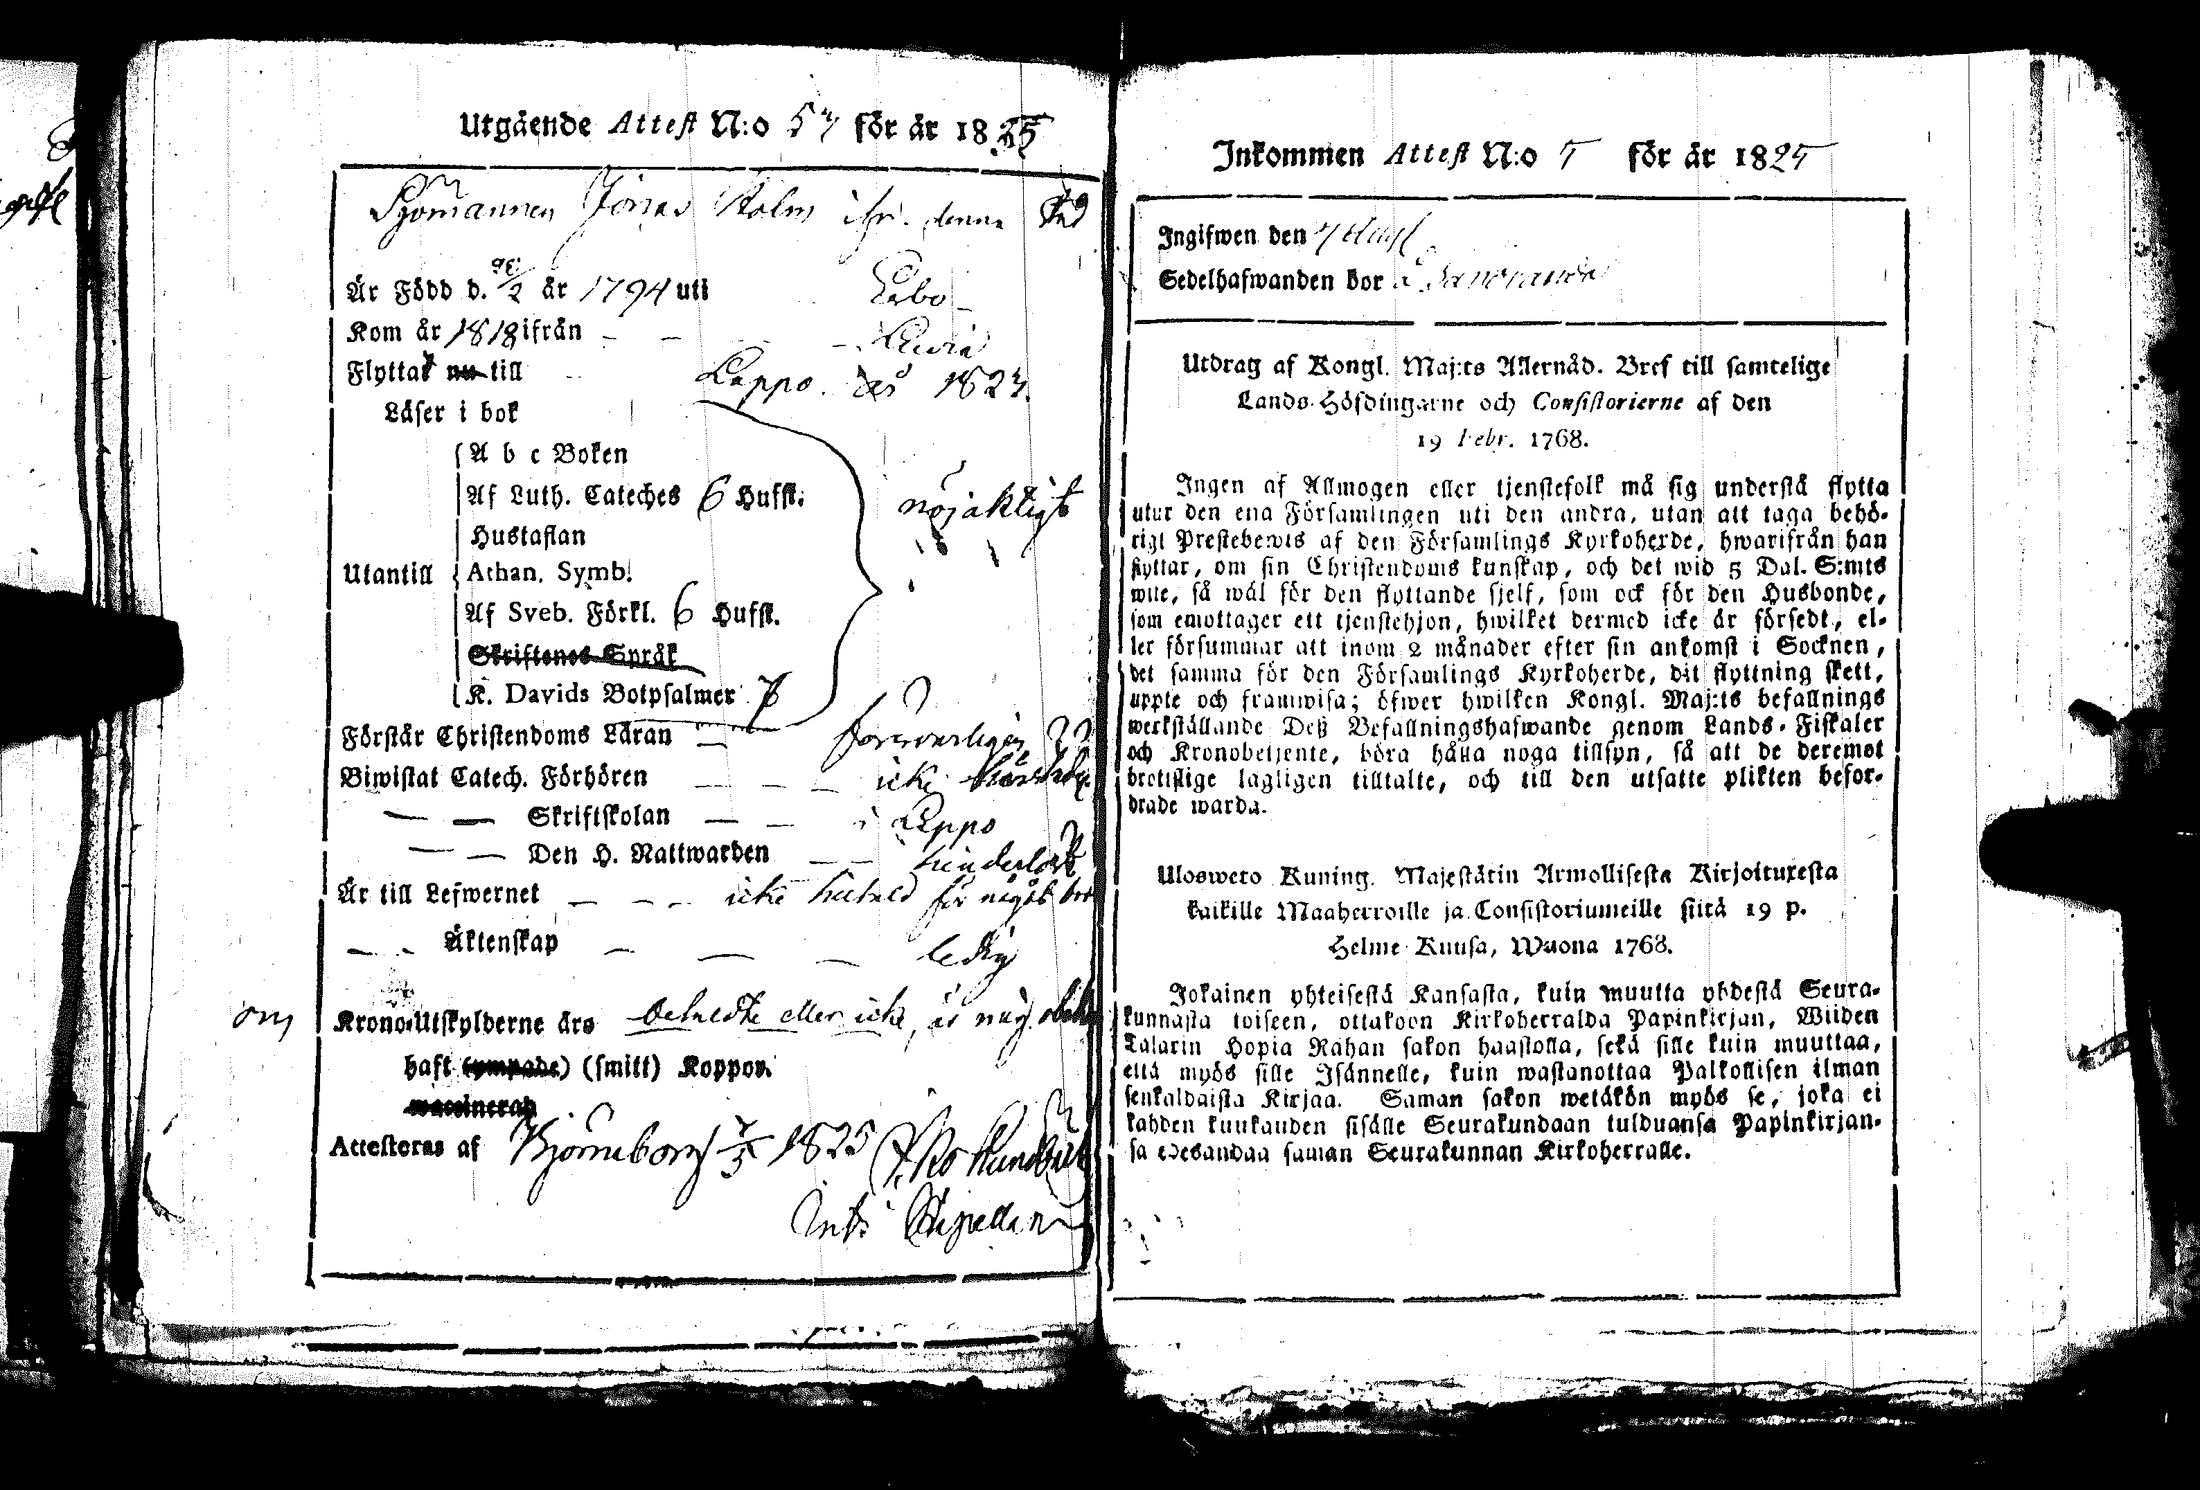 Utgående Attest N:o 57 för år 1825
Sjömannen Jonas Holm ifrn. denna Stad
Är Född d. 2 år 1794 uti Eabo
Kom år 1818 ifrån Luvia
Flyttat nu till Lappo år 1824.
Läser i bok
A b c Boken
Af Luth. Cateches 6 Hufst. nöjaktigt
Hustaflan
Utantill Athan. Symb.
Af Sveb. Förkl. 6 Hufst.
Skriftenes Språk
K. Davids Botpsalmer 7
Förstår Christendoms Läran försvarligen
Biwistat Catech. Förhören icke
— — Skriftskolan — — i Lappo
— — Den H. Nattwarden — — hinderlöst
Är till Lefwernet — — — icke för något
— — Äktenskap — — — ledig
om Krono-Utskylderne äro betalte eller icke, är mig
haft (ympade) (smitt) Koppor.
waccinerad
Attesteras af Björneborg 7/5 1825
Capellan
Inkommen Attest N:o 5 för år 1825
Ingifwen den 7
Sedelhafwanden bor
Utdrag af Kongl. Maj:ts Allernåd. Bref till samtelige
Lands-Höfdingarne och Consistorierne af den
19 Febr. 1768.
Ingen af Allmogen eller tjenstefolk må sig understå flytta
utur den ena Församlingen uti den andra, utan att taga behö-
rigt Prestebewis af den Församlings Kyrkoherde, hwarifrån han
flyttar, om sin Christendoms kunskap, och det wid 5 Dal. S:mts
wite, så wäl för den flyttande sjelf, som ock för den Husbonde,
som emottager ett tjenstehjon, hwilket dermed icke är försedt, el-
ler försummar att inom 2 månader efter sin ankomst i Socknen,
det samma för den Församlings Kyrkoherde, dit flyttning skett,
uppte och framwisa; öfwer hwilken Kongl. Maj:ts befallnings
werkställande Deß Befallningshafwande genom Lands-Fiskaler
och Kronobetjente, böra hålla noga tillsyn, så att de deremot
brottslige lagligen tilltalte, och till den utsatte plikten befor-
drade warda.
Ulosweto Kuning. Majestätin Armollisesta Kirjoituxesta
kaikille Maaherroille ja Consistoriumeille siitä 19 p.
Helme-Kuusa, Wuona 1768.
Jokainen yhteisestä Kansasta, kuin muutta yhdestä Seura-
kunnasta toiseen, ottakoon Kirkoherralda Papinkirjan, Wiiden
Talarin Hopia Rahan sakon haastolla, sekä sille kuin muuttaa,
että myös sille Isännelle, kuin wastanottaa Palkollisen ilman
senkaldaista Kirjaa. Saman sakon wetäkön myös se, joka ei
kahden kuukauden sisälle Seurakundaan tulduansa Papinkirjan-
sa edesandaa saman Seurakunnan Kirkoherralle.